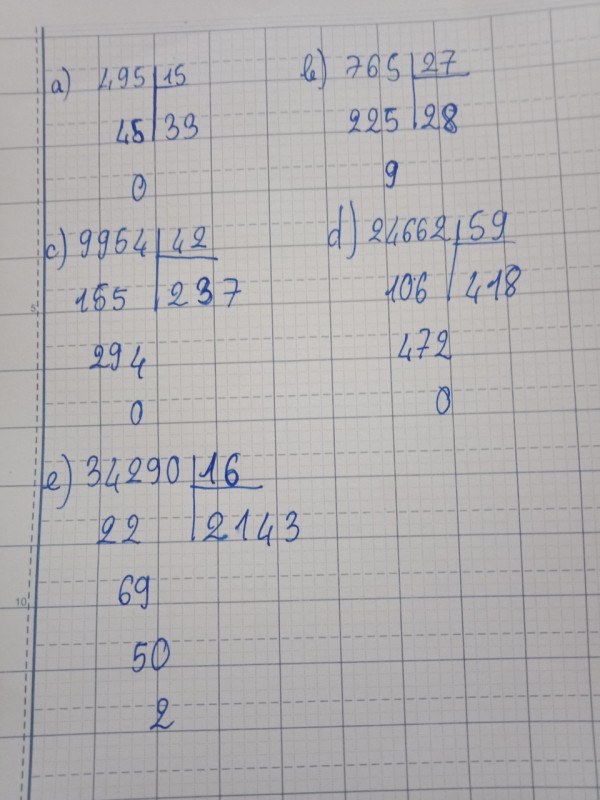 a) 495 15
45 33
0
b) 765 27
225 28
9
c) 9954 42
155 237
294
0
d) 24662 59
106 418
472
0
e) 34290 16
22 2143
69
50
2
5
10